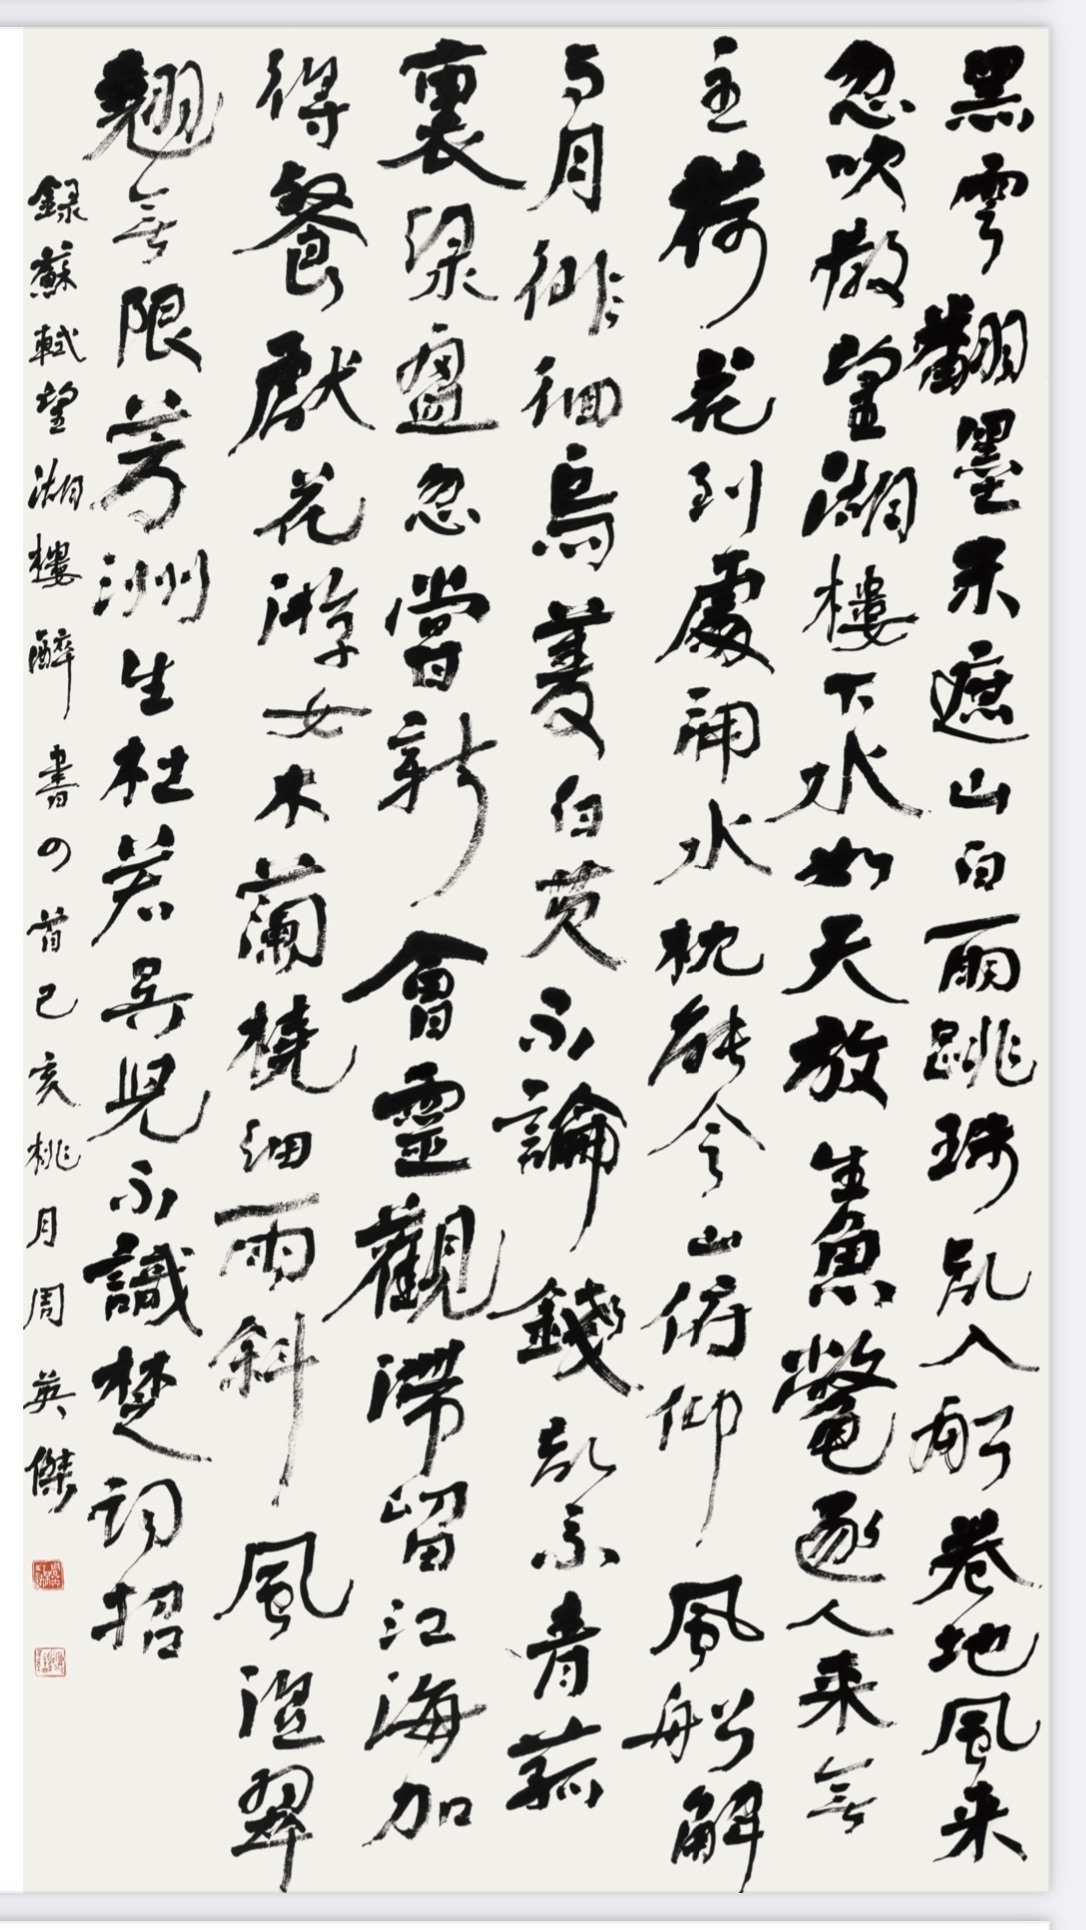 黑雲翻墨未遮山白雨跳珠亂入船卷地風来
忽吹散望湖樓下水如天放生魚鼈逐人來無
主荷花到處開水枕能令山俯仰風船解
与月徘徊烏菱白芡不論錢亂系青菰
裹淥盌忽嘗新會靈觀滯留江海加
得餐獻花游女木蘭橈細雨斜風溼翠
翹無限芳洲生杜若吴兒不識楚詞招
録蘇軾望湖樓醉書の首己亥桃月周英傑